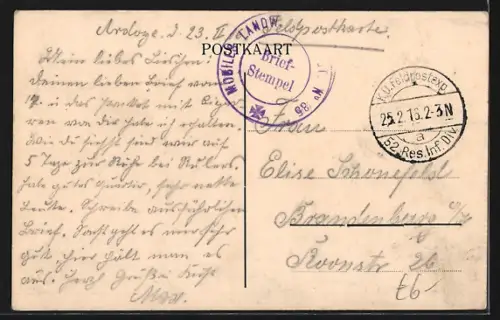 Ardoye d. 23. II Feldpostkarte
POSTKAART
MOBILES LANDW. No 85
Brief-
Stempel
K.D. Feldpostexp.
25.2.16.2-3N
a
52. Res. Inf. Div.
Mein liebes Lieschen!
Deinen lieben Brief vom
17. u das Packet mit Cigar
ren von dir habe ich erhalten.
Wie du siehst sind wir auf
5 Tage zur Ruhe bei Rulers.
Habe gutes Quartier, sehr nette
Leute. Schreibe ausführlichen
Brief. Sonst geht es mir sehr
gut. hier hält man es
aus. Herzl Grüße Kuß
Max.
Frau
Elise Schönefeld
Brandenburg a/H
Roonstr 26